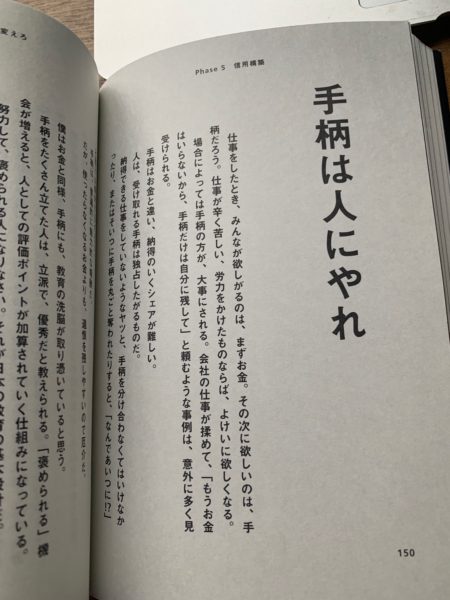 変えろ
Phase 5 信用構築
手柄は人にやれ
仕事をしたとき、みんなが欲しがるのは、まずお金。その次に欲しいのは、手
柄だろう。仕事が辛く苦しい、労力をかけたものならば、よけいに欲しくなる。
場合によっては手柄の方が、大事にされる。会社の仕事が揉めて、「もうお金
はいらないから、手柄だけは自分に残して」と頼むような事例は、意外に多く見
受けられる。
手柄はお金と違い、納得のいくシェアが難しい。
人は、受け取れる手柄は独占したがるものだ。
納得できる仕事をしていないようなヤツと、手柄を分け合わなくてはいけなか
ったり、またはそいつに手柄を丸ごと奪われたりすると、「なんであいつに!?」
僕はお金と同様、手柄にも、教育の洗脳が取り憑いていると思う。
手柄をたくさん立てた人は、立派で、優秀だと教えられる。「褒められる」機
会が増えると、人としての評価ポイントが加算されていく仕組みになっている。
努力して、褒められる人になりなさい。それが日本の教育の基本設計だ。
150